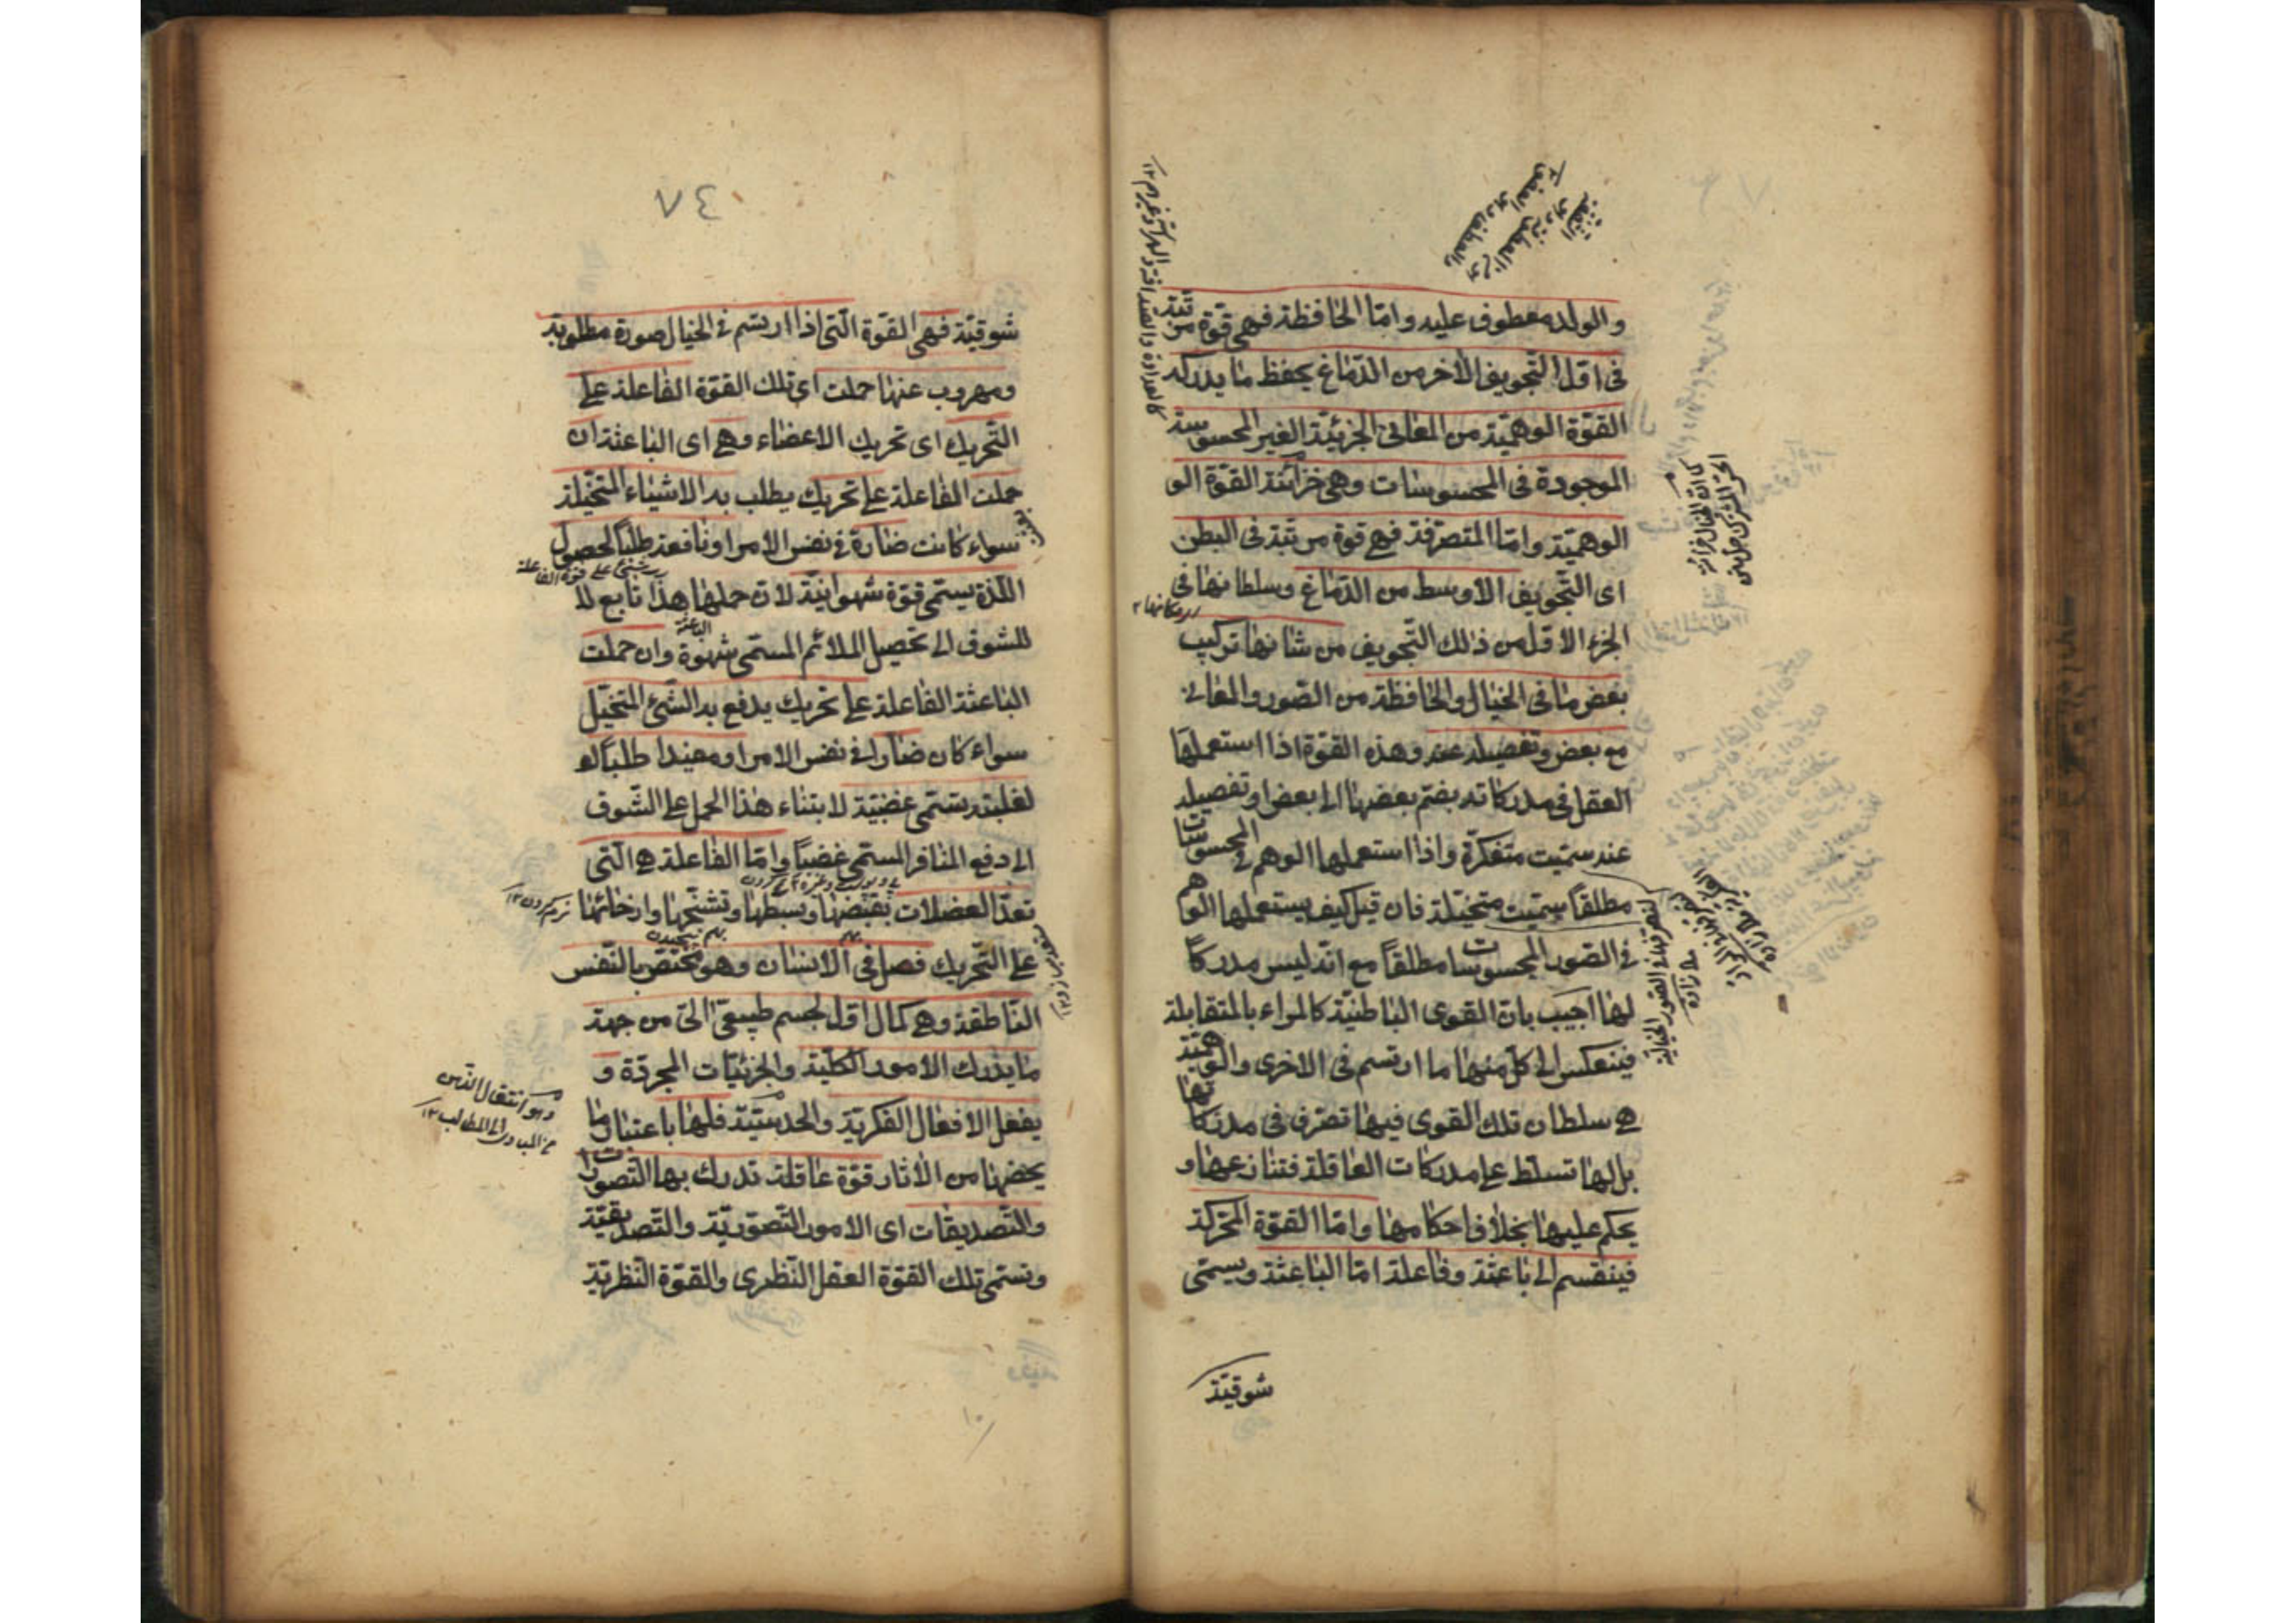 والولد معطوف عليه وامّا الحافظة فهي قوّة مرتبة
فى اوّل التّجويف الأخر من الدّماغ يحفظ ما يدركه
القوّة الوهميّة من المعانى الجزئيّة الغير المحسوسة
الموجودة فى المحسوسات وهى خزانة القوّة الو
الوهميّة وامّا المتصرّفة فهى قوة مرتبة فى البطن
اى التّجويف الاوسط من الدّماغ وسلطانها فى
الجزء الاوّل من ذلك التّجويف من شانها تركيب
بعض ما فى الخيال والحافظة من الصّور والمعانى
مع بعض وتفصيله عنه وهذه القوّة اذا استعملها
العقل فى مدركاته بضمّ بعضها الى بعض او تفصيله
عنه سمّيت متفكرّة واذا استعملها الوهم فى المحسوسات
مطلقاً سمّيت متخيّلة فان قيل كيف يستعملها الوهم
فى الصّور المحسوسات مطلقاً مع انّه ليس مدركاً
لها اجيب بانّ القوى الباطنيّة كالمراء بالمتقابلة
فينعكس الى كلّ منها ما ارتسم فى الاخرى والوهميّة
هى سلطان تلك القوى فيها تصرّف فى مدركاتها
بل لها تسلّط على مدركات العاقلة فتنازعها و
يحكم عليها بخلاف احكامها وامّا القوّة المحرّكة
فينقسم الى باعثة وفاعلة امّا الباعثة ويسمّى
شوقيّة
٧٤
شوقيّة فهى القوّة الّتى اذا ارتسم فى الخيال صورة مطلوبة
ومهروب عنها حملت اى تلك القوّة الفاعلة على
التّحريك اى تحريك الاعضاء وهى اى الباعثة ان
حملت الفاعلة على تحريك يطلب به الاشياء المتخيّلة
سواء كانت ضارة فى نفس الامر او نافعة طلباً لحصول
اللّذة يسمّى قوّة شهوانيّة لانّ حملها هذا تابع لل
للشوق الى تحصيل الملائم المسمّى شهوة وان حملت
الباعثة الفاعلة على تحريك يدفع به الشّئ المتخيّل
سواء كان ضارا فى نفس الامر او مفيدا طلباً لو
لغلبته يسمّى غضبيّة لابتناء هذا الحمل على الشّوق
الى دفع المنافر المسمّى غضباً وامّا الفاعلة هى الّتى
تعدّ العضلات بقبضها وبسطها وتشنّجها وارخائها
على التّحريك فصل فى الانسان وهو مختصّ بالنّفس
النّاطقة وهى كمال اوّل لجسم طبيعىّ الىّ من جهة
ما يدرك الامور الكليّة والجزئيّات المجردّة و
يفعل الافعال الفكريّة والحدسيّة فلها باعتبار ما
يخصّها من الأثار قوّة عاقلة تدرك بها التّصورات
والتّصديقات اى الامور التّصوّريّة والتّصديقيّة
وتسمّى تلك القوّة العقل النّظرى والقوّة النّظريّة
وهو انتقال الذهن
من المبادى الى المطالب ١٢